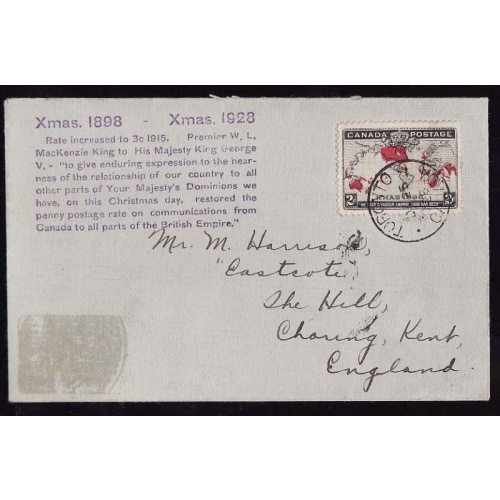 Xmas. 1898 - Xmas. 1928
Rate increased to 3c 1915. Premier W. L.
MacKenzie King to His Majesty King George
V, - "to give enduring expression to the hear-
ness of the relationship of our country to all
other parts of Your Majesty's Dominions we
have, on this Christmas day, restored the
penny postage rate on communications from
Canada to all parts of the British Empire."
CANADA POSTAGE
XMAS 1898
2 2
"WE HOLD A VASTER EMPIRE THAN HAS BEEN"
TORONTO
Mr. M. Harrison
"Eastcote"
The Hill,
Charing, Kent,
England.